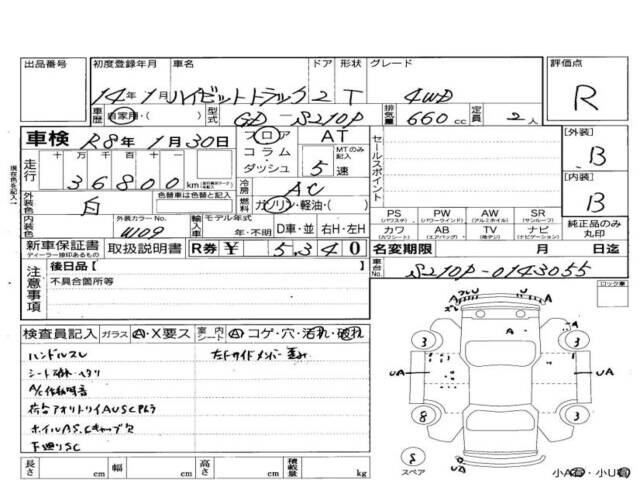 出品番号 初度登録年月 車名 ドア 形状 グレード 評価点
14年1月 ハイゼットトラック 2 T 4WD R
車歴 自家用・( ) 型式 GD-S210P 排気量 660cc 定員 2人
車検 R8年1月30日 フロア コラム ダッシュ AT MTのみ記入 5速
セールスポイント
[外装] B
[内装] B
現在色を記入
走行 十万 万 千 百 十 36800km
冷房 AC
外装色 白 色替車は色替と記入
燃料 ガソリン・軽油・( )
内装色 外装カラーNo. W09 輸入車 モデル年式 年・不明 D車・並 右H・左H
PS (パワステ) PW (パワーウインド) AW (アルミホイル) SR (サンルーフ)
カワ (カワシート) AB (エアバッグ) TV (地デジ) ナビ (ナビゲーション)
純正品のみ丸印
新車保証書 ディーラー捺印あるもの 取扱説明書 R券 ¥ 5,340
名変期限 月 日迄
注意事項 後日品[
不具合箇所等
車台No. S210P-0143055
ロック車
検査員記入 ガラス A・X要ス 室内シート A コゲ・穴・汚れ・破れ
ハンドルスレ 左右サイドメンバー歪み
シート破れ・ヘタリ
A/C作動明音
荷台アオリトリイAUSCPLラ
ホイルAS、Cキャップ欠
下廻りSC
長さ cm 幅 cm 高さ cm 積載量 kg
フレU U
ズレ A
A
3 3
UA A UA
8 3
S
スペア
UA
小A有・小U有